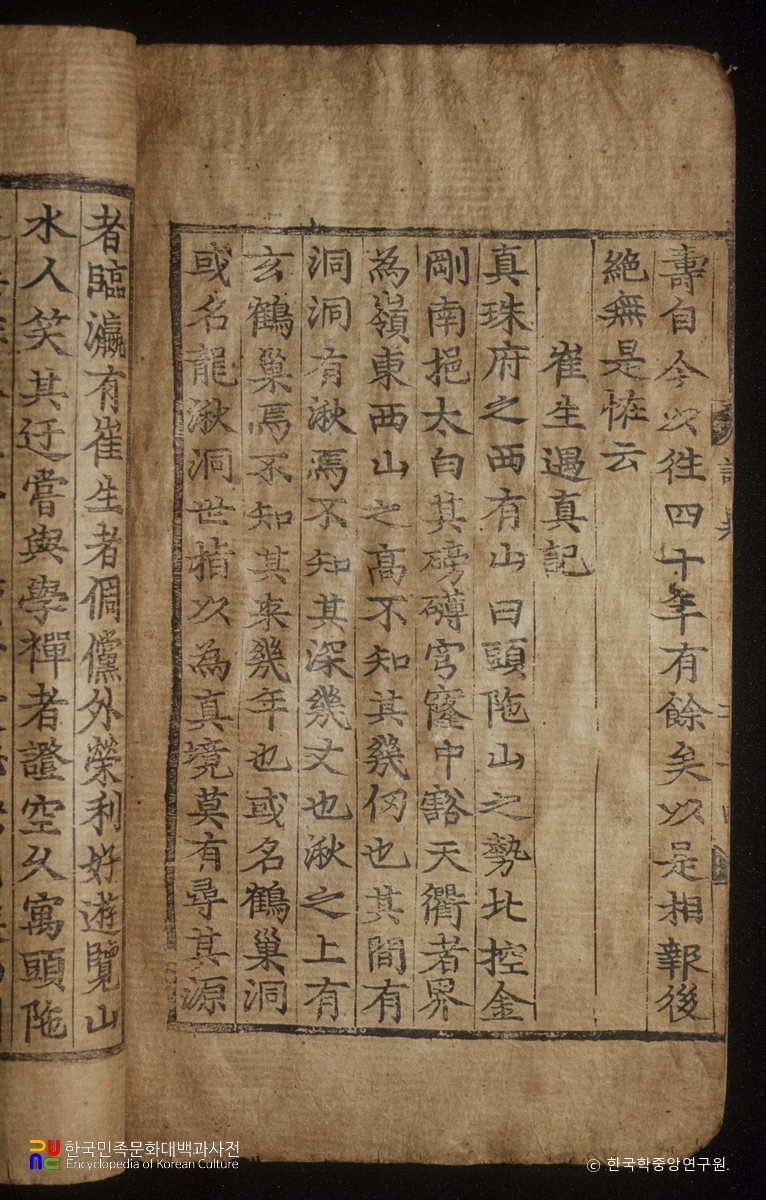 壽自今以徃四十年有餘矣以是相報後
絶無是恠云
崔生遇真記
真珠府之西有山曰頭陁山之勢北控金
剛南挹太白其磅礴穹窿中豁天衢者界
為嶺東西山之高不知其幾仭也其間有
洞洞有湫焉不知其深幾丈也湫之上有
玄鶴巢焉不知其来幾年也或名鶴巢洞
或名龍湫洞世指以為真境莫有尋其源
者臨瀛有崔生者倜儻外榮利好遊覽山
水人笑其迂嘗與學禪者證空久寓頭陁
한국민족문화대백과사전
Encyclopedia of Korean Culture
© 한국학중앙연구원.